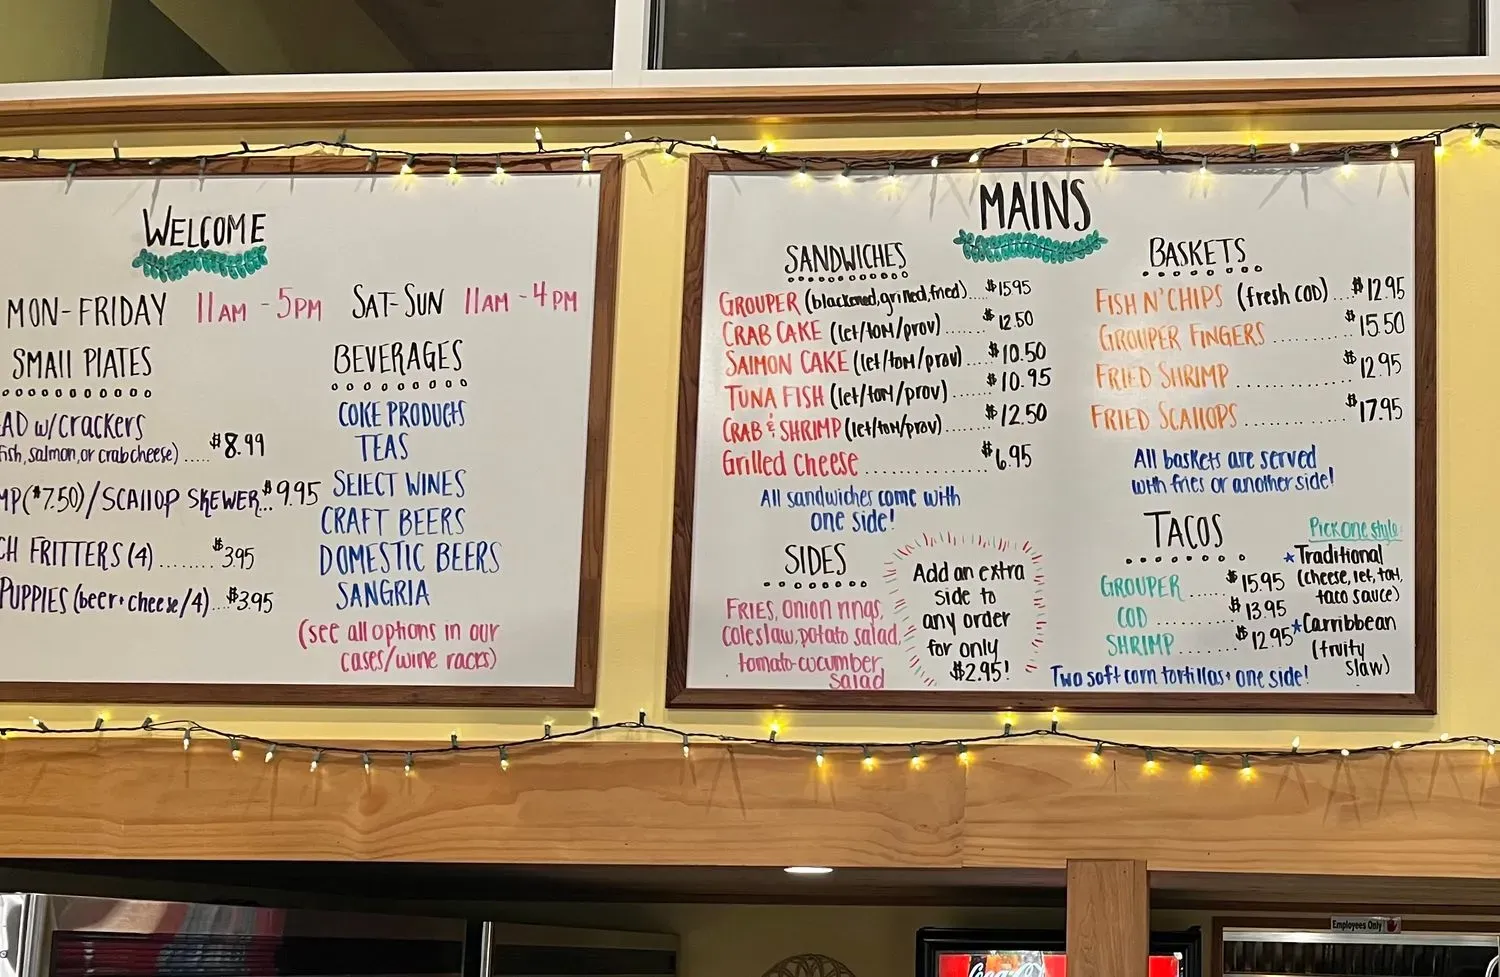 WELCOME
MON-FRIDAY 11AM - 5PM SAT-SUN 11AM - 4PM
SMALL PLATES
AD w/crackers
fish, salmon, or crab cheese) ..... $8.99
MP ($7.50) / SCALLOP SKEWER... $9.95
CH FRITTERS (4) ........ $3.95
PUPPIES (beer + cheese/4) ... $3.95
BEVERAGES
COKE PRODUCTS
TEAS
SELECT WINES
CRAFT BEERS
DOMESTIC BEERS
SANGRIA
(see all options in our
cases/wine racks)
MAINS
SANDWICHES
GROUPER (blackened, grilled, fried).... $15.95
CRAB CAKE (let/tom/prov) ....... $12.50
SALMON CAKE (let/tom/prov) .... $10.50
TUNA FISH (let/tom/prov) ...... $10.95
CRAB & SHRIMP (let/tom/prov) ...... $12.50
Grilled cheese ............ $6.95
All sandwiches come with
one side!
SIDES
FRIES, onion rings,
coleslaw, potato salad,
tomato-cucumber
salad
Add an extra
side to
any order
for only
$2.95!
BASKETS
FISH N' CHIPS (fresh COD) ... $12.95
GROUPER FINGERS ........... $15.50
FRIED SHRIMP ............... $12.95
FRIED SCALLOPS .............. $17.95
All baskets are served
with fries or another side!
TACOS
GROUPER ...... $15.95
COD ........... $13.95
SHRIMP ......... $12.95
Pick one style:
★ Traditional
(cheese, let, tom,
taco sauce)
★ Carribbean
(fruity
slaw)
Two soft corn tortillas + one side!
Employees Only
Coca-Cola